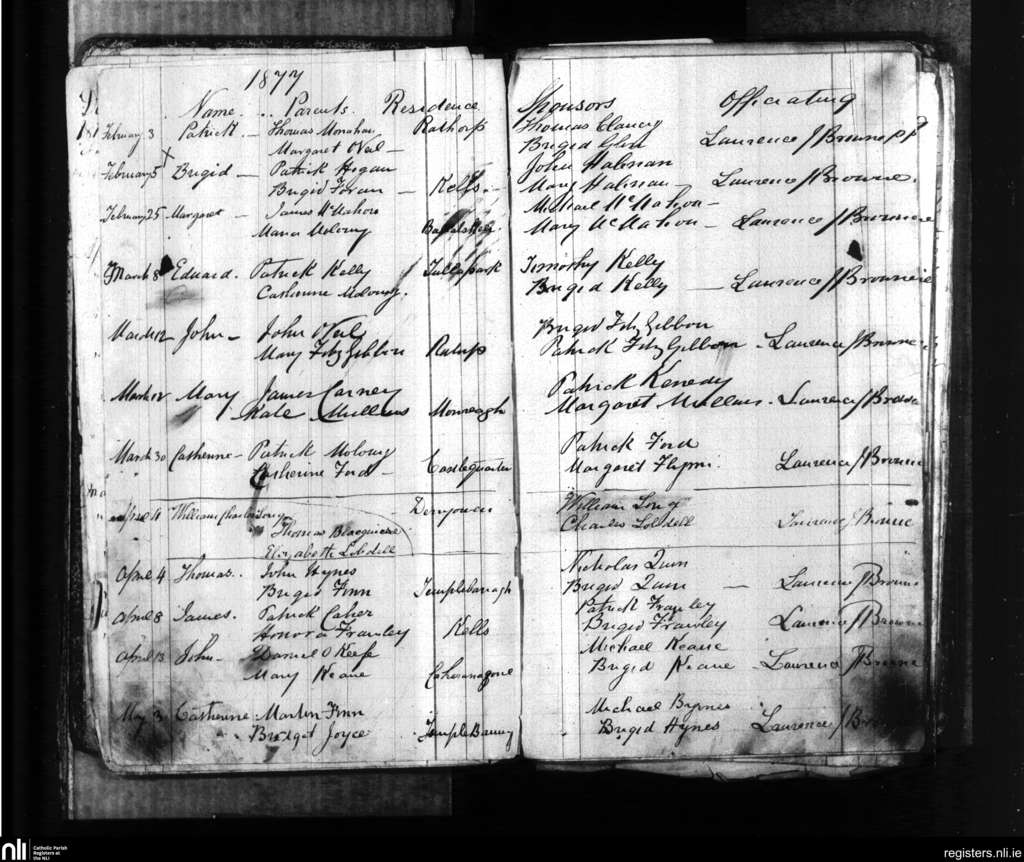 1877
Name. Parents. Residence Sponsors Officiating
February 3 Patrick — Thomas Monahan Rathorp Thomas Clancy Laurence J Browne PP
Margaret O'Neal — Brigid Glin
February 5 Brigid — Patrick Hogan John Halinan
Brigid Foran — Kells. Mary Halinan — Laurence J Browne.
February 25 Margaret — James McMahon Michael McMahon —
Maria Molony Mary McMahon — Laurence J Browne
March 8 Edward. Patrick Kelly Tullapark Timothy Kelly
Catherine Molony. Brigid Kelly — Laurence J Browne
March 12 John — John O'Neal Brigid FitzGibbon
Mary FitzGibbon Patrick FitzGibbon — Laurence J Browne
March 12 Mary James Carney Patrick Kenedy
Kate Mullins Monreagh Margaret Mullins. Laurence J Browne
March 30 Catherine — Patrick Molony Patrick Ford
Catherine Ford — Castlequarter Margaret Flynn. Laurence J Browne
April 11 William Charles Derryowen William Long
Thomas Charles Lobdell Laurence J Browne
Elizabeth Lobdell
April 4 Thomas. John Hynes Nicholas Quin
Brigid Finn Brigid Quin — Laurence J Browne
April 8 James. Patrick Caher Patrick Frawley
Honora Frawley Kells Brigid Frawley Laurence J Browne
April 13 John — Daniel O Keefe Michael Keane
Mary Keane Brigid Keane — Laurence J Browne
May 3 Catherine Martin Finn Michael Byrnes
Bridget Joyce Brigid Hynes Laurence J
nli Catholic Parish
Registers at
the NLI
registers.nli.ie